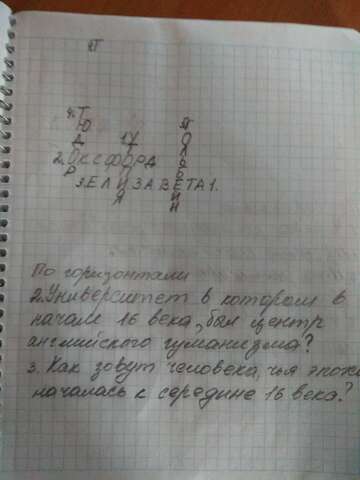 4Т
4.ТЮДОР
1УТОПИЯ
2.ОКСФОРД
3.ЕЛИЗАВЕТА 1.
По горизонтали
2.Университет в котором в
начале 16 века, был центр
английского гуманизма?
3. Как зовут человека, чья эпоха
началась к середине 16 века?